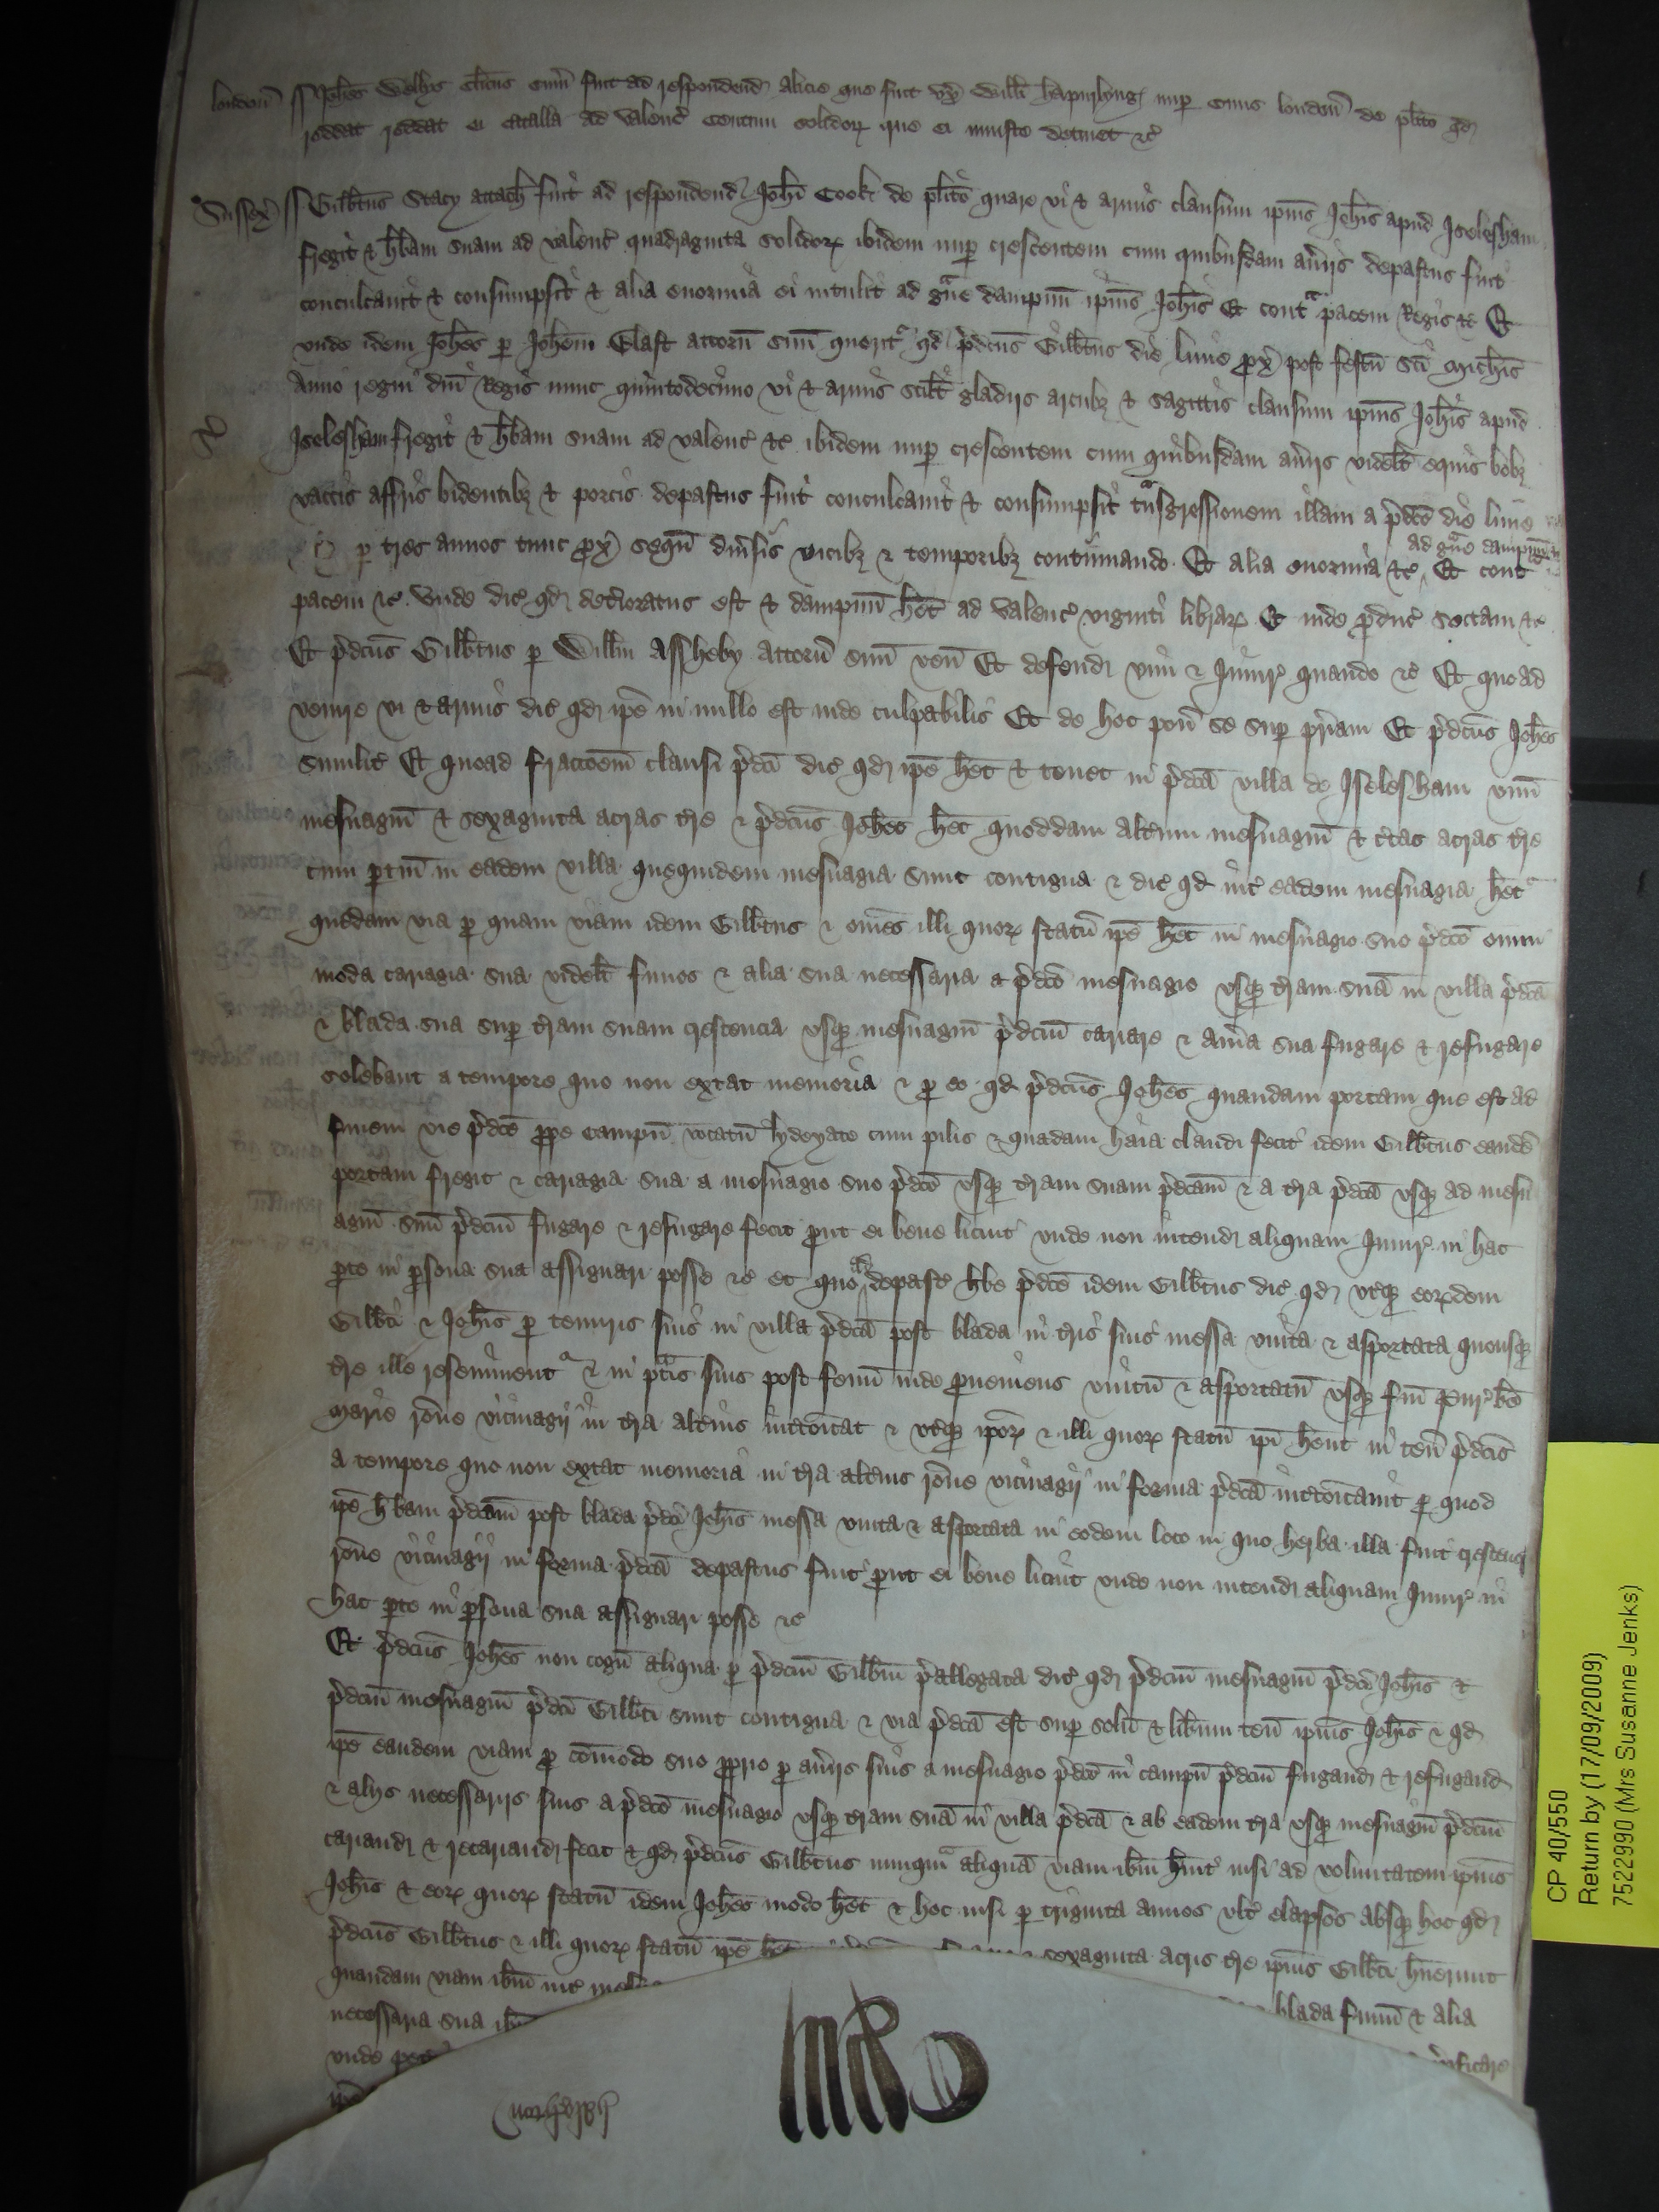 london Johes Wellys clicus sum fuit ad respondend Alicie que fuit ux Willi nup Civis london de plito qd
reddat reddat ei catalla ad valenc centum solidor que ei iniuste detinet &c
Sussex Gilbtus Stacy attach fuit ad respondend Johi Cook de plito quare vi & armis clausum ipius Johis apud Iselesham
fregit & hbam suam ad valenc quadraginta solidor ibidem nup crescentem cum quibusdam aviis depastus fuit
conculcavit & consumpsit & alia enormia ei intulit ad gve dampnu ipius Johis Et contra pacem Regis &c Et
unde idem Johes p Johem attorn suu querit qd pdcus Gilbtus die lune px post festu sci Michis
Anno regni dni Regis nunc quintodecimo vi & armis scilt gladiis arcubz & sagittis clausum ipius Johis apud
Iselesham fregit & hbam suam ad valenc &c ibidem nup crescentem cum quibusdam aviis videlt equis bobz
vaccis affris bidentibz & porcis depastus fuit conculcavit & consumpsit tnsgressionem illam a pdco die lune
p tres annos tunc px sequn divsis vicibz & temporibz continuando Et alia enormia &c ad gve dampnu &c Et cont
pacem &c unde dic qd detioratus est & dampnu het ad valenc viginti librar Et inde pduc sectam &c
Et pdcus Gilbtus p Willm Assheby attorn suu ven Et defend vim & Iniur quando &c Et quo ad
venire vi & armis dic qd ipe in nullo est inde culpabilis Et de hoc pon se sup priam Et pdcus Johes
similit Et quoad fraccoem clausi pdci dic qd ipe het & tenet in pdca villa de Iselesham unu
mesuagiu & sexaginta acras tre & pdcus Johes het quoddam altum mesuagiu & ctas acras tre
cum ptin in eadem villa quequidem mesuagia sunt contigua & dic qd int eadem mesuagia het
quedam via p quam viam idem Gilbtus & omes illi quor statu ipe het in mesuagio suo pdco omni
moda cariagia sua videlt fimos & alia sua necessaria a pdco mesuagio usqz tram sua in villa pdca
& blada sua sup tram suam crescencia usqz mesuagiu pdcm cariare & avia sua fugare & refugare
solebant a tempore quo non extat memoria & p eo qd pdcus Johes quandam portam que est ad
finem vie pdce ppe campu vocatu lydeyate cum pilis & quadam haia claudi fecit idem Gilbtus eande
portam fregit & cariagia sua a mesuagio suo pdco usqz tram suam pdcam & a tra pdca usqz ad mesu
agiu suu pdcm fugare & refugare fecit put ei bene licuit unde non intend aliquam Iniur in hac
pte in psona sua assignari posse &c et quo ad depast hbe pdce idem Gilbtus dic qd utqz eordem
Gilbti & Johis p tenuris suis in villa pdca post blada in tris suis messa vinta & asportata quousqz
tre ille reseminent & in ptis suis post fenu inde pveniens vinctu & asportatu usqz fm Pur be
Marie rone vicinagii in tra altius intcoicat & utqz ipor & illi quor statu ipi hent in ten pdcis
a tempore quo non extat memoria in tra altius rone vicinagii in forma pdca intcoicavit p quod
ipe hbam pdcam post blada pdci Johis messa vinta & asportata in eodem loco in quo herba illa fuit crescens
rone vicinagii in forma pdca depastus fuit put ei bene licuit unde non intend aliquam Iniur in
hac pte in psona sua assignari posse &c
Et pdcus Johes non cogn aliqua p pdcm Gilbtm pallegata dic qd pdcm mesuagiu pdci Johis &
pdcm mesuagiu pdci Gilbti sunt contigua & via pdca est sup solu & libum ten ipius Johis & qd
ipe eandem viam p comodo suo pprio p aviis suis a mesuagio pdco in campu pdcm fugand & refugand
& aliis necessariis suis a pdco mesuagio usqz tram sua in villa pdca & ab eadem tra usqz mesuagiu pdcm
cariand & recariand fecit & qd pdcus Gilbtus nunqm aliqua viam ibm huit nisi ad voluntatem ipius
Johis & eor quor statu idem Johes modo het & hoc nisi p triginta annos ult elapsos absqz hoc qd
pdcus Gilbtus & illi quor statu ipe het sexaginta acris tre ipius Gilbti huerunt
quandam viam ibm int blada fimu & alia
necessaria sua ibm
unde pet vificare
CP 40/550
Return by (17/09/2009)
7522990 (Mrs Susanne Jenks)